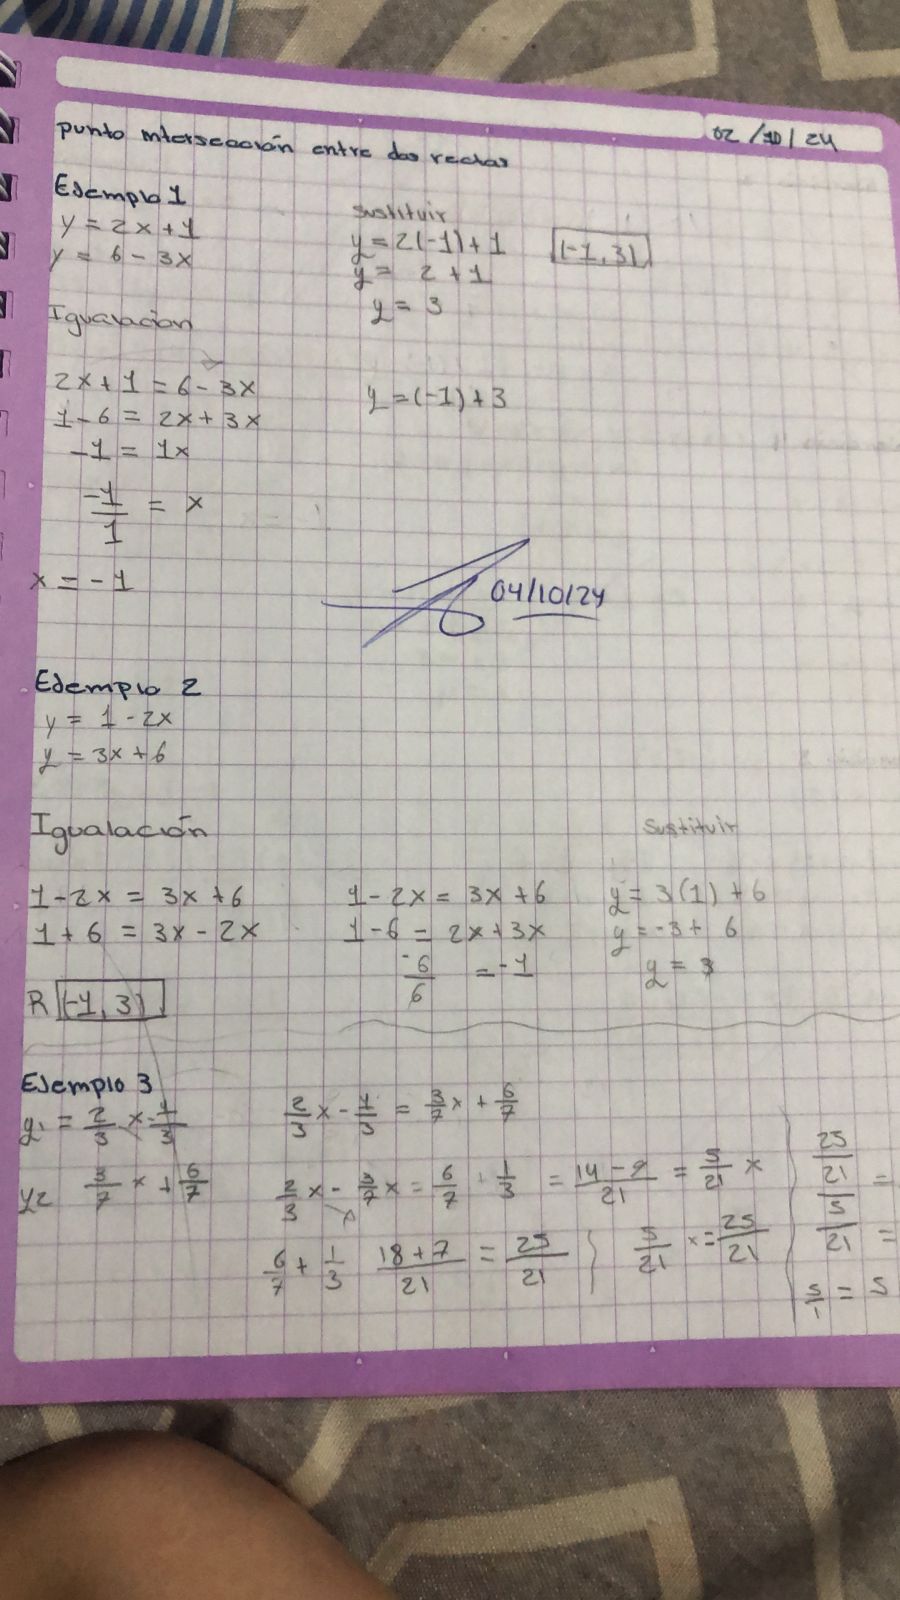 02/10/24
punto intersección entre dos rectas
Ejemplo 1
y = 2x+1
y = 6-3x
Igualación
2x+1 = 6-3x
1-6 = 2x+3x
-1 = 1x
-1/1 = x
x = -1
sustituir
y = 2(-1)+1
y = 2+1
y = 3
(-1, 3)
y = (-1)+3
04/10/24
Ejemplo 2
y = 1-2x
y = 3x+6
Igualación
1-2x = 3x+6
1+6 = 3x-2x
R (-1, 3)
1-2x = 3x+6
1-6 = 2x+3x
-6/6 = -1
sustituir
y = 3(1)+6
y = -3+6
y = 3
Ejemplo 3
y1 = 2/3 x - 1/3
y2 3/7 x + 6/7
2/3 x - 1/3 = 3/7 x + 6/7
2/3 x - 3/7 x = 6/7 + 1/3 = 14-9/21 = 5/21 x
6/7 + 1/3 18+7/21 = 25/21
5/21 x = 25/21
25/21 =
5/21 =
5/1 = 5